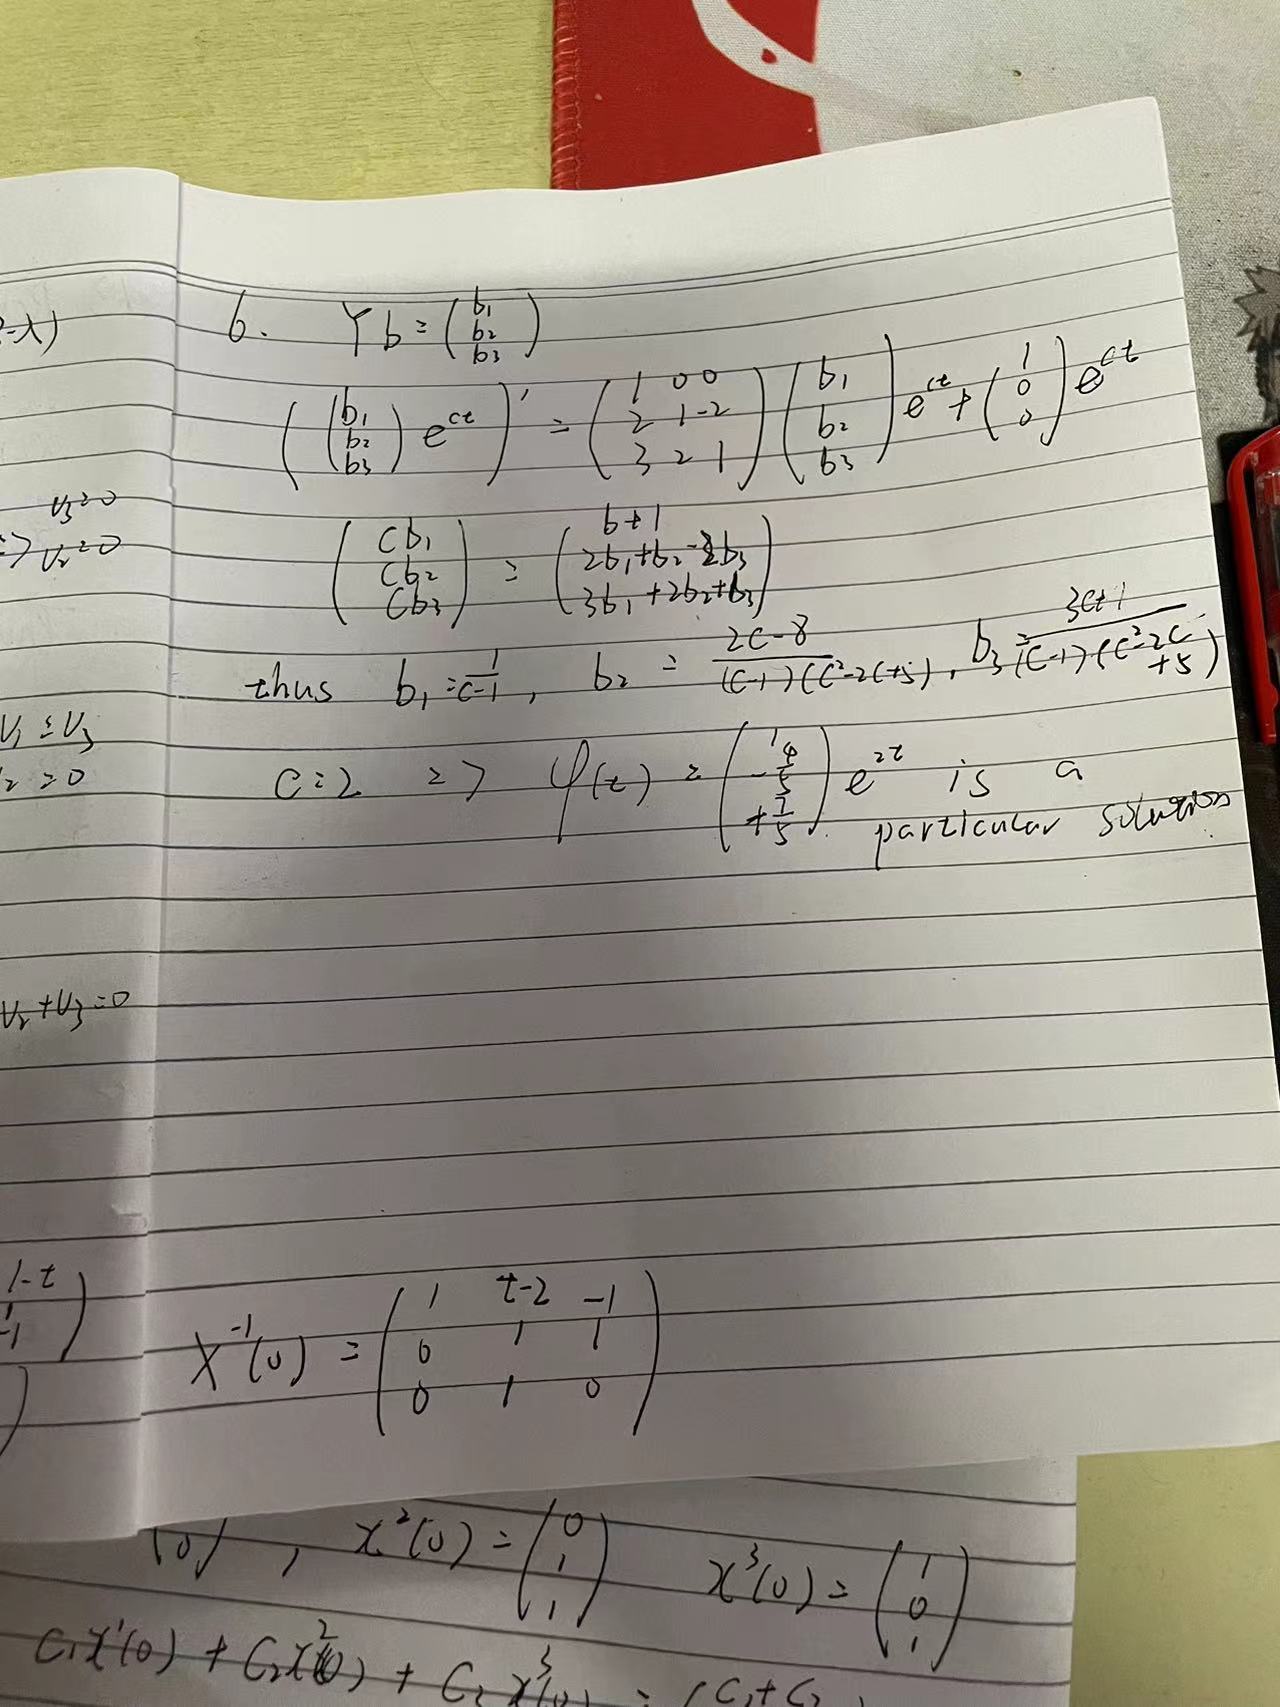 2-λ)
v₃=0
=> v₂=0
v₁=v₃
v₂=0
v₂+v₃=0
1-t
-1
6. Yb=(b₁ b₂ b₃)
((b₁ b₂ b₃) e^{ct})' = (1 0 0 2 1 -2 3 2 1) (b₁ b₂ b₃) e^{ct} + (1 0 0) e^{ct}
(cb₁ cb₂ cb₃) = (b+1 2b₁+b₂-2b₃ 3b₁+2b₂+b₃)
thus b₁=1/(c-1), b₂ = (2c-8)/((c-1)(c²-2c+5)), b₃=(3c+1)/((c-1)(c²-2c+5))
c=2 => φ(t) = (1 -4/5 +7/5) e^{2t} is a
particular solution
X⁻¹(0) = (1 t-2 -1 0 1 1 0 1 0)
, x²(0) = (0 1 1) x³(0) = (1 0 1)
c₁x¹(0) + c₂x²(0) + c₃x³(0) = (c₁+c₃